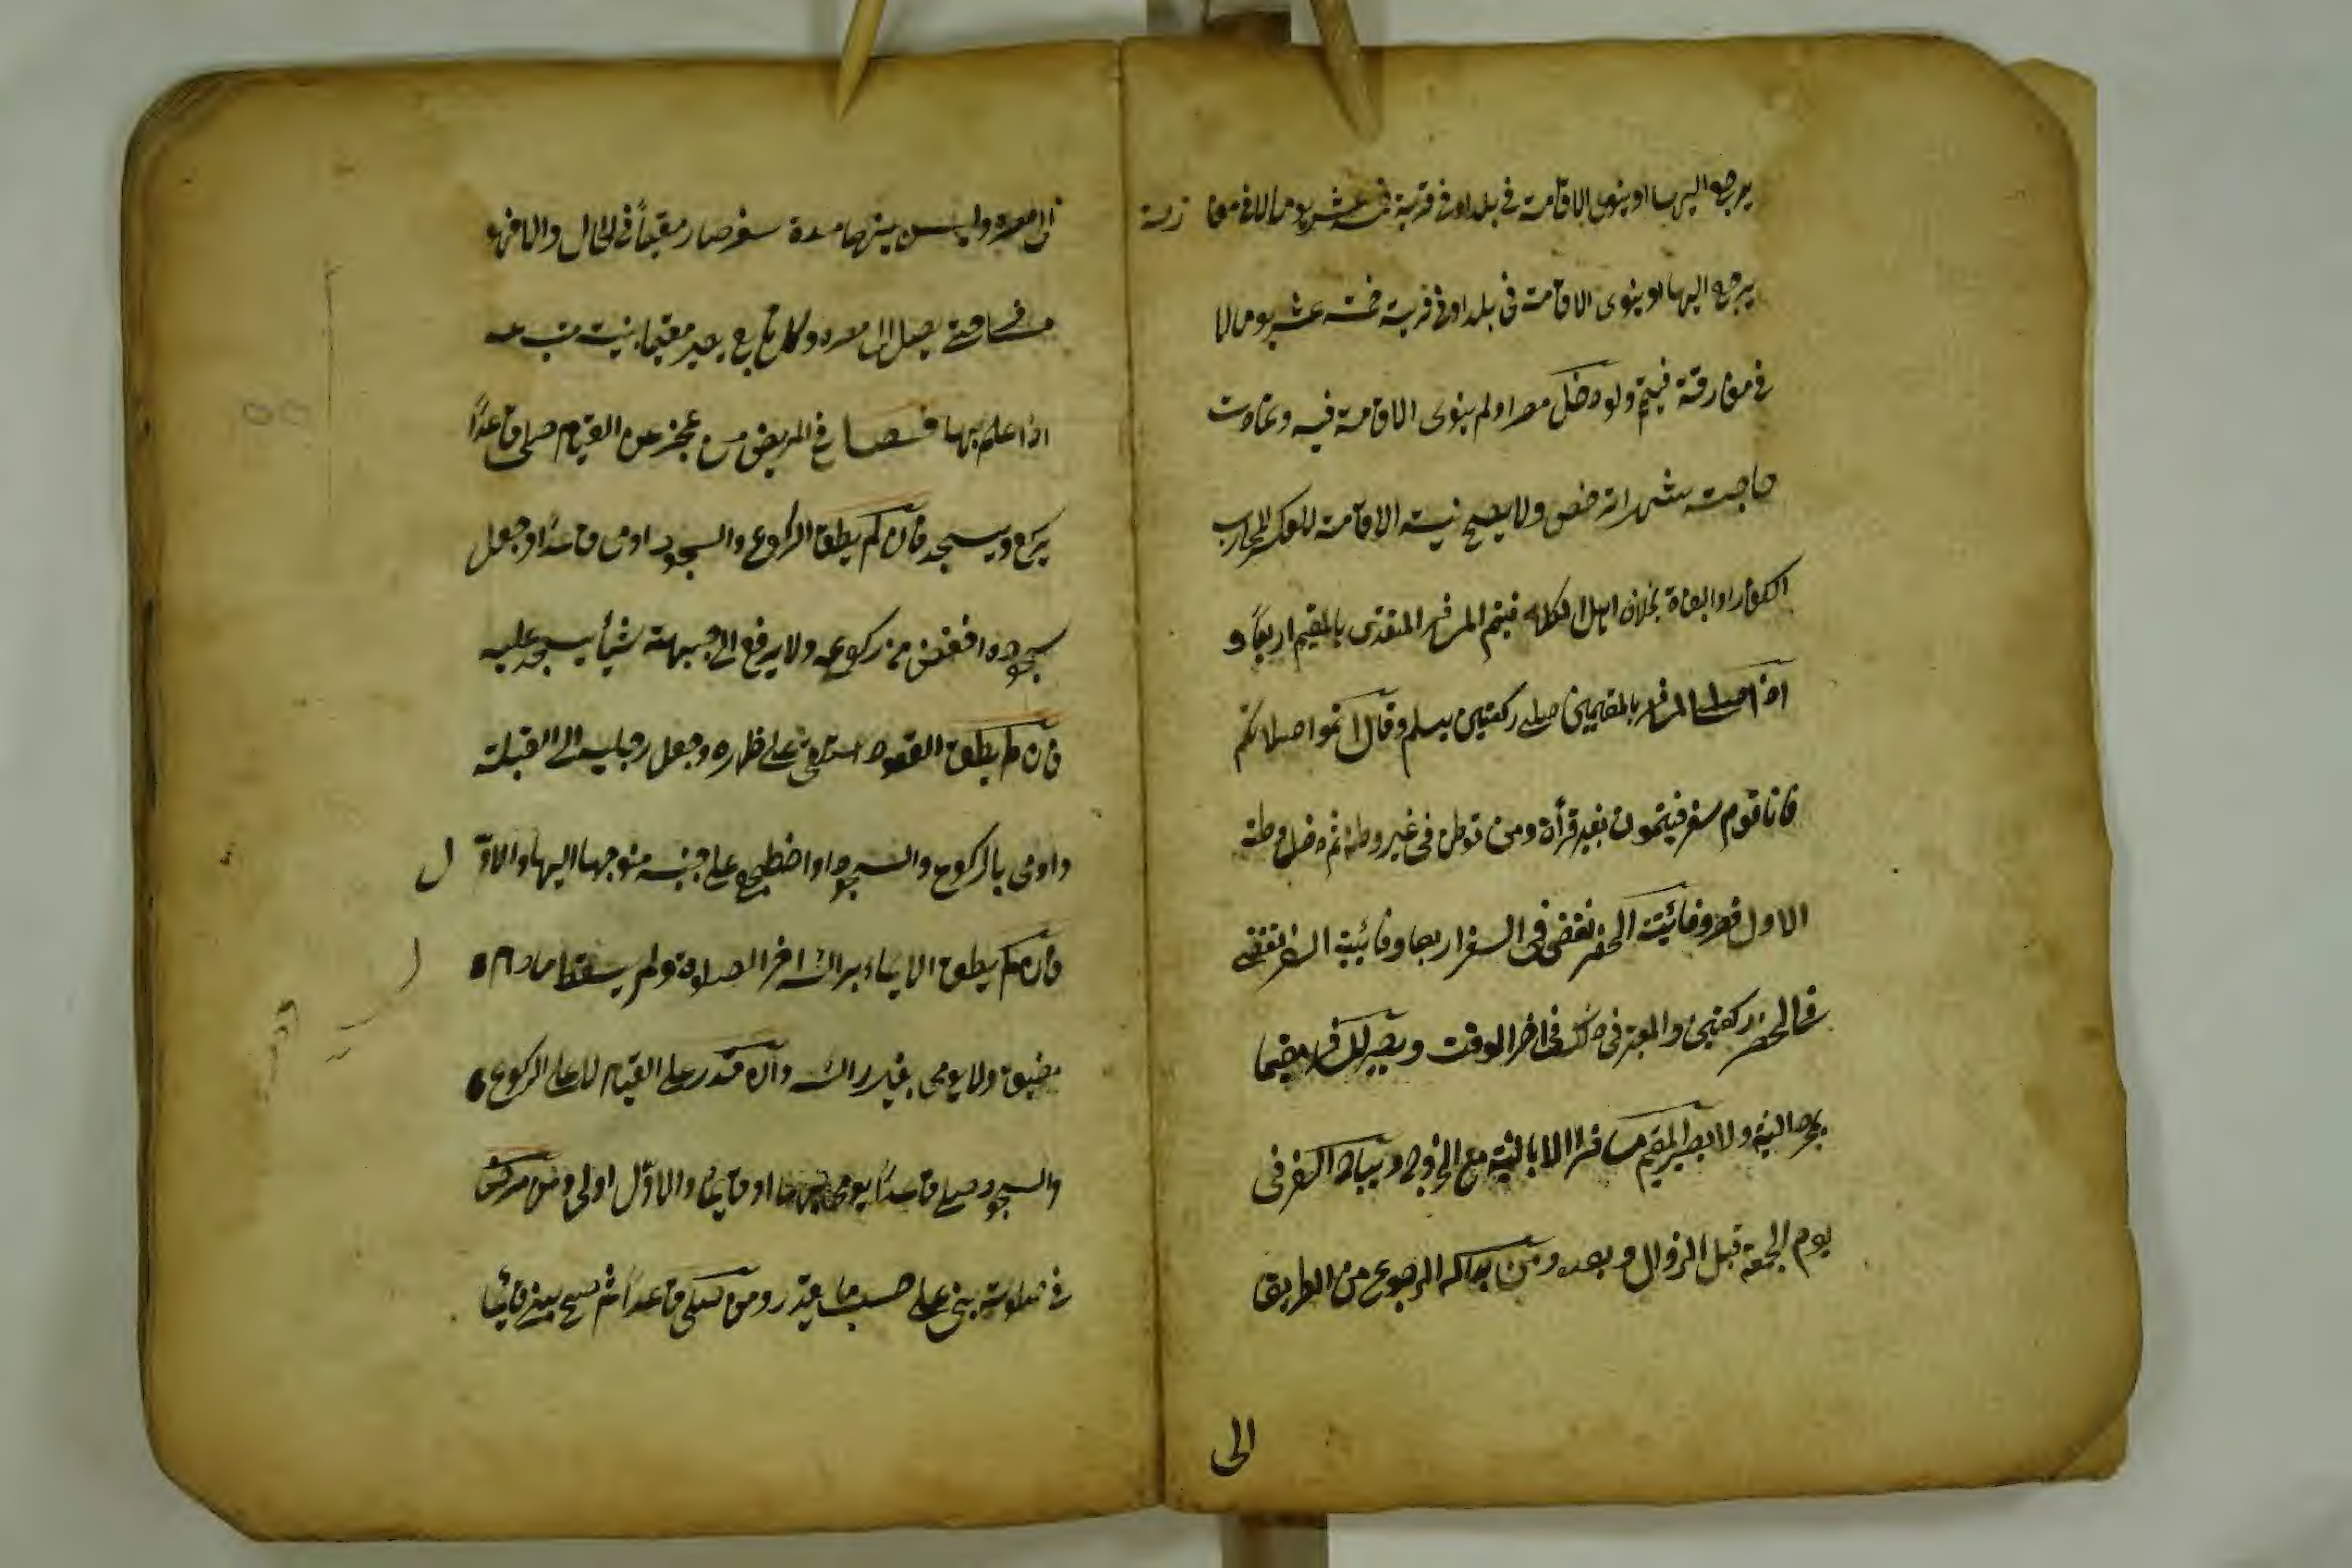 يرجع اليها او ينوى الاقامة في بلد او في قرية خمسة عشر يوما لا في مفا زة
يرجع اليها او ينوى الاقامة في بلد او في قرية خمسة عشر يوما لا
في مفارقة فيتم ولو دخل مصرا ولم ينوى الاقامة فيه وتمادت
حاجته شهرا ترخص ولا يصح نية الاقامة للعسكر المحارب
الكفار او البغاة بخلاف اهل الكلاء فيتم المسافر المقتدى بالمقيم اربعًا و
اذا صلى المسافر بالمقيمين صلى ركعتين يسلم وقال اتموا صلاتكم
فانا قوم سفر فيتمون بغير قرأة ومن توطن في غير وطنه ثم دخل وطنه
الاول قصر وفائتة الحضر تقضى في السفر اربعا وفائتة السفر تقضى
في الحضر ركعتين والمعتبر في ذلك في اخر الوقت ويصير المسافر مقيما
بمجرد النية ولا يصير المقيم مسافرا الا بالنية مع الخروج ويباح السفر في
يوم الجمعة قبل الزوال وبعده ومن بدا له الرجوع من الطريق
الى
الى مصره وليس بينهما مدة سفر صار مقيمًا في الحال والا فهو
مسافر حتى يصل الى مصره وكل تابع يصير مقيما بنية متبوعه
اذا علم بها فصل في المريض من عجز عن القيام صلى قاعدًا
يركع ويسجد فان لم يطق الركوع والسجود اومى قاعدًا وجعل
سجوده اخفض من ركوعه ولا يرفع الى جبهته شيأ يسجد عليه
فان لم يطق القعود استلقى على ظهره وجعل رجليه الى القبلة
واومى بالركوع والسجود او اضطجع على جنبه متوجها اليها والاوّ ل
فان لم يطق الايماء براسه اخر الصلاة ولم يسقط مادام
مفيق ولا يومى بغير راسه وان قدر على القيام لا على الركوع
والسجود صلى قاعدًا يومى بهما او قائما والاوّل اولى ومن مرض
في صلوته بنى على حسب ما يقدر ومن صلى قاعدًا ثم صح بنى قائما